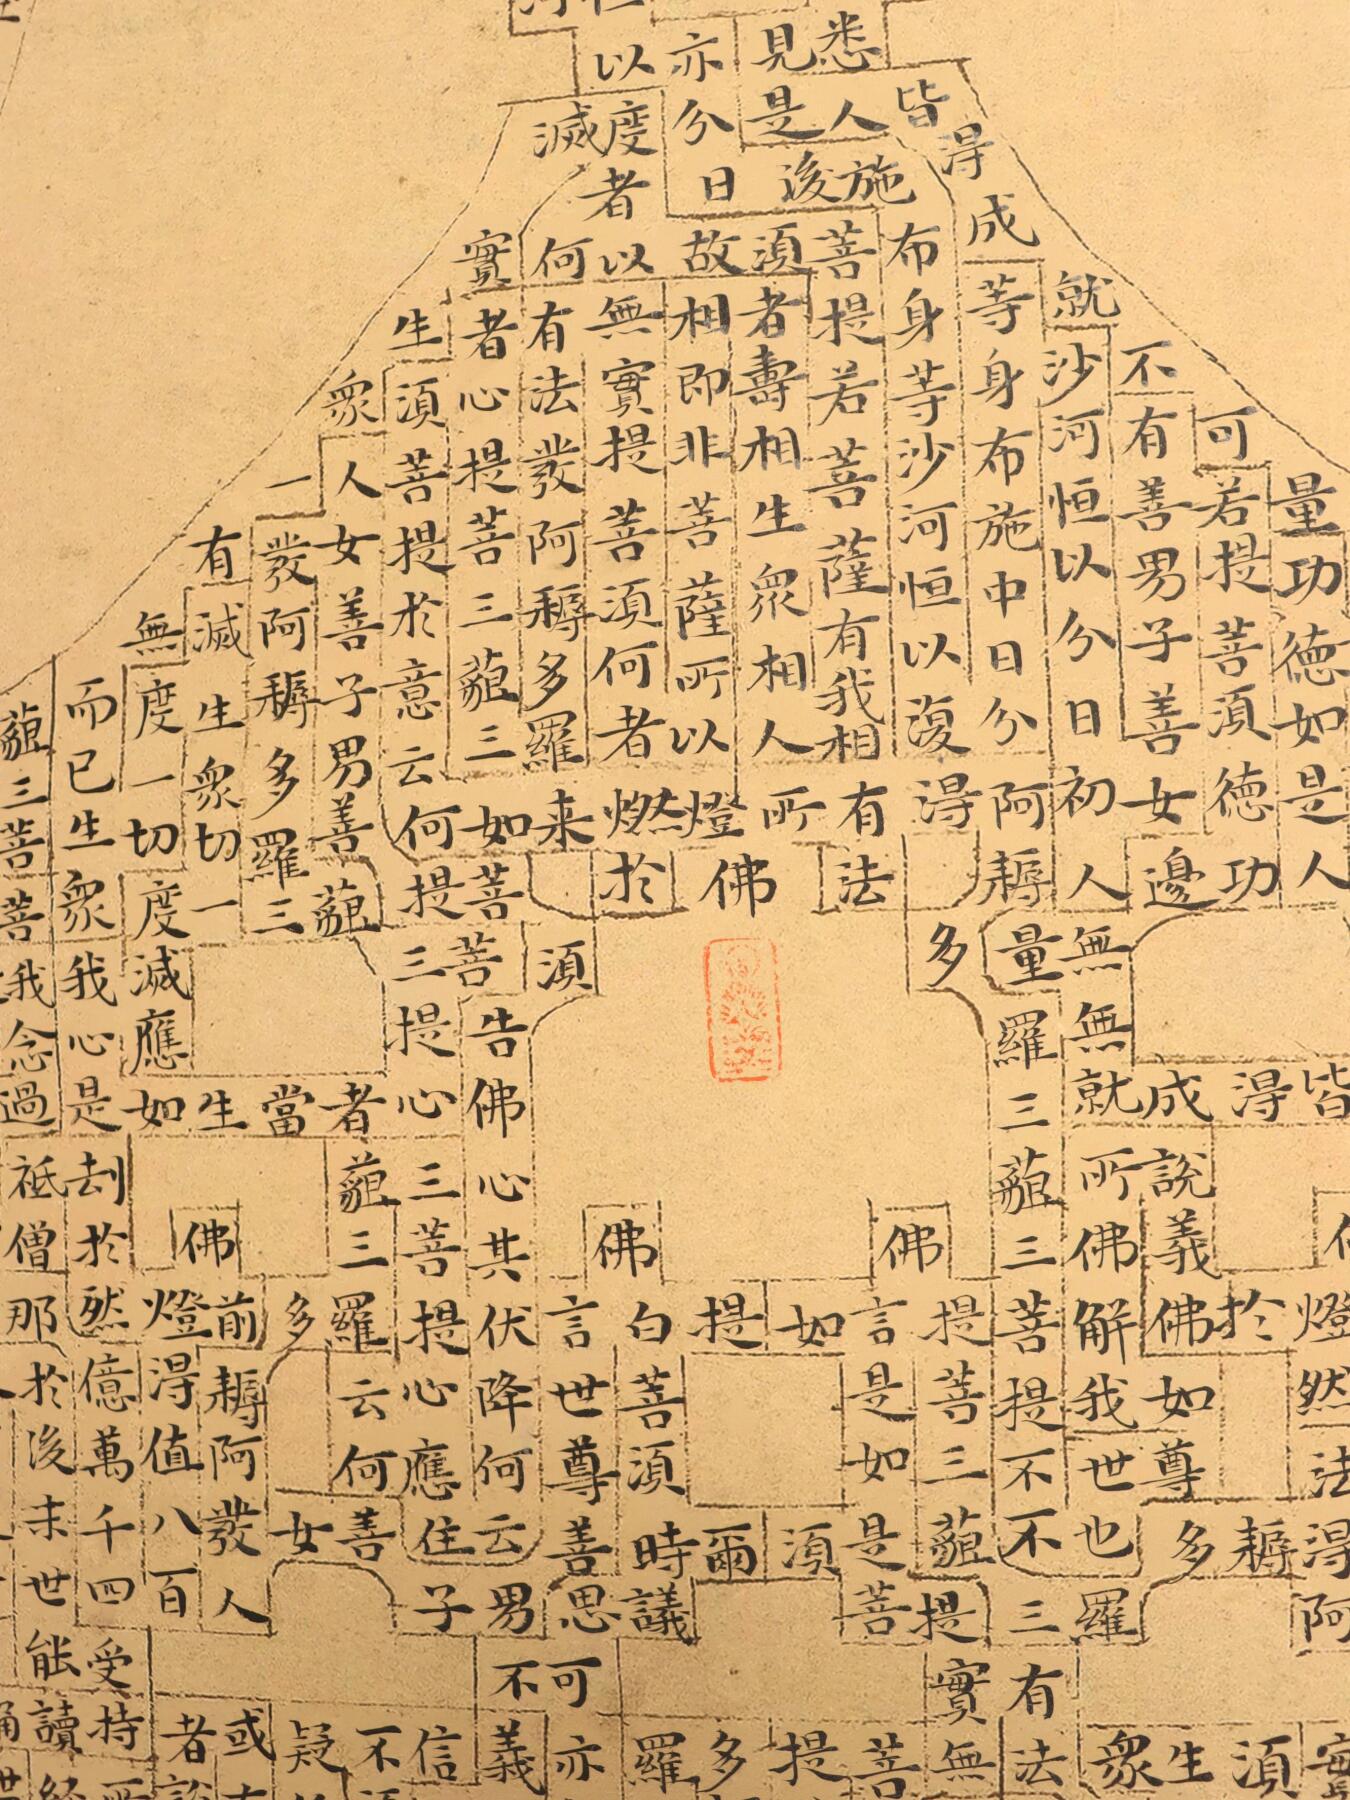 量功德如是人
皆
燈然法得阿
可若提菩須德功
得
於
耨
須
不有善男子善女邊
成說義佛如尊多
生
就沙河恒以分日初人無無就所佛解我世也羅
眾
得成等身布施中日分阿耨量羅三藐三菩提不不三有法
皆布身等沙河恒以復得
多
佛提菩三藐提實無
悉人施菩提若菩薩有我相有法
言是如是菩
菩
見是後須者壽相生眾相人所
如
須
提
亦分日故相即非菩薩所以燈佛
提
爾
多
以度者以無實提菩須何者燃於
佛白菩須時議
羅
滅何有法發阿耨多羅来
須
言世尊善思可亦
實者心提菩三藐三如菩菩告佛心其伏降何云男不義
生須菩提於意云何提三提心三菩提心應住子
信
眾人女善子男善藐
者藐三羅云何善
不
一發阿耨多羅三
當
多
女
疑
有滅生眾切一
生
佛前耨阿發人
或
無度一切度滅應如
燈得值八百
者
而已生眾我心是劫於然億萬千四受持
藐三菩菩我念過祇僧那於後未世能讀